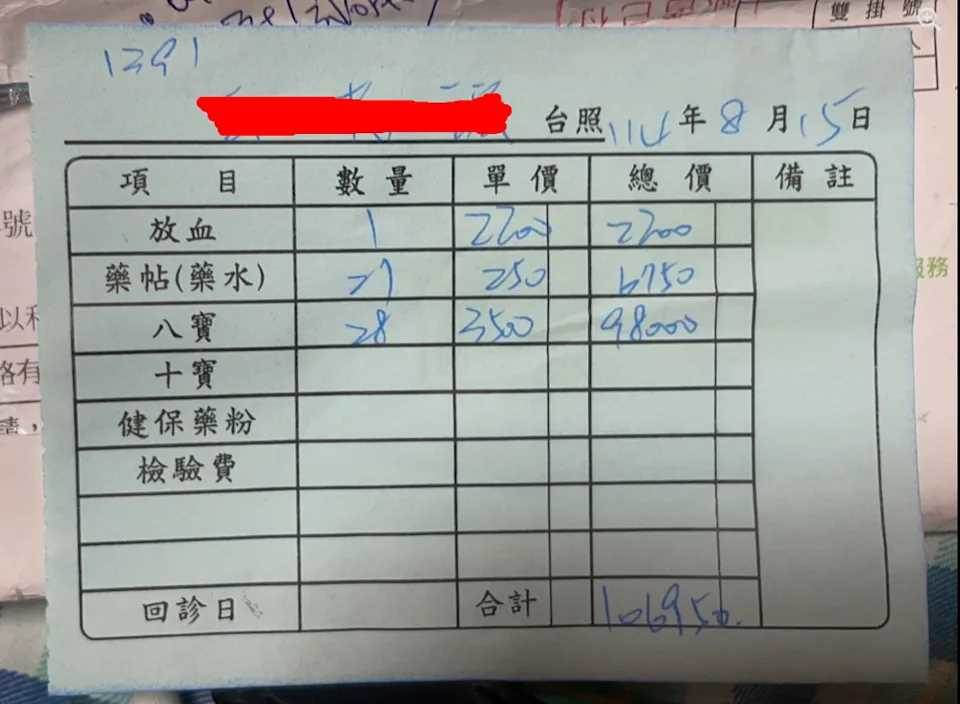 雙掛號
1291
台照 114年8月15日
項目 數量 單價 總價 備註
放血 1 2200 2200
藥帖(藥水) 27 250 6750
八寶 28 3500 98000
十寶
健保藥粉
檢驗費
回診日 合計 106950.
號
以利
服務